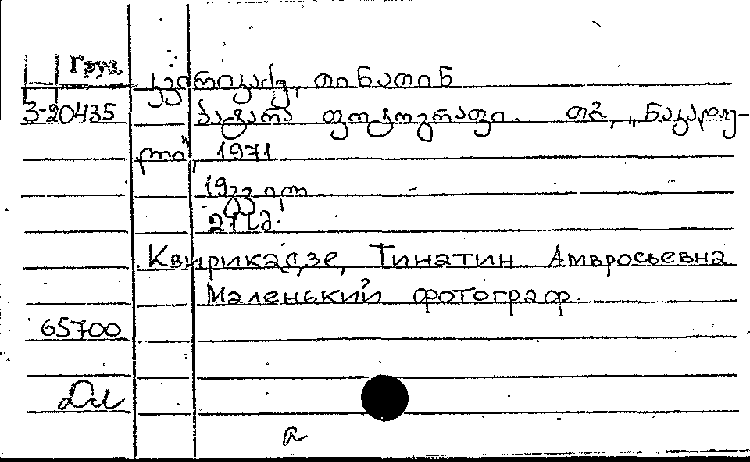 Груз.
კვირიკაძე, თინათინ
3-20435 პატარა ფოტოგრაფი. თბ., „ნაკადუ-
ლი", 1971
19 გვ. ილ.
27 სმ.
Квирикадзе, Тинатин Амвросьевна
Маленький фотограф.
65700